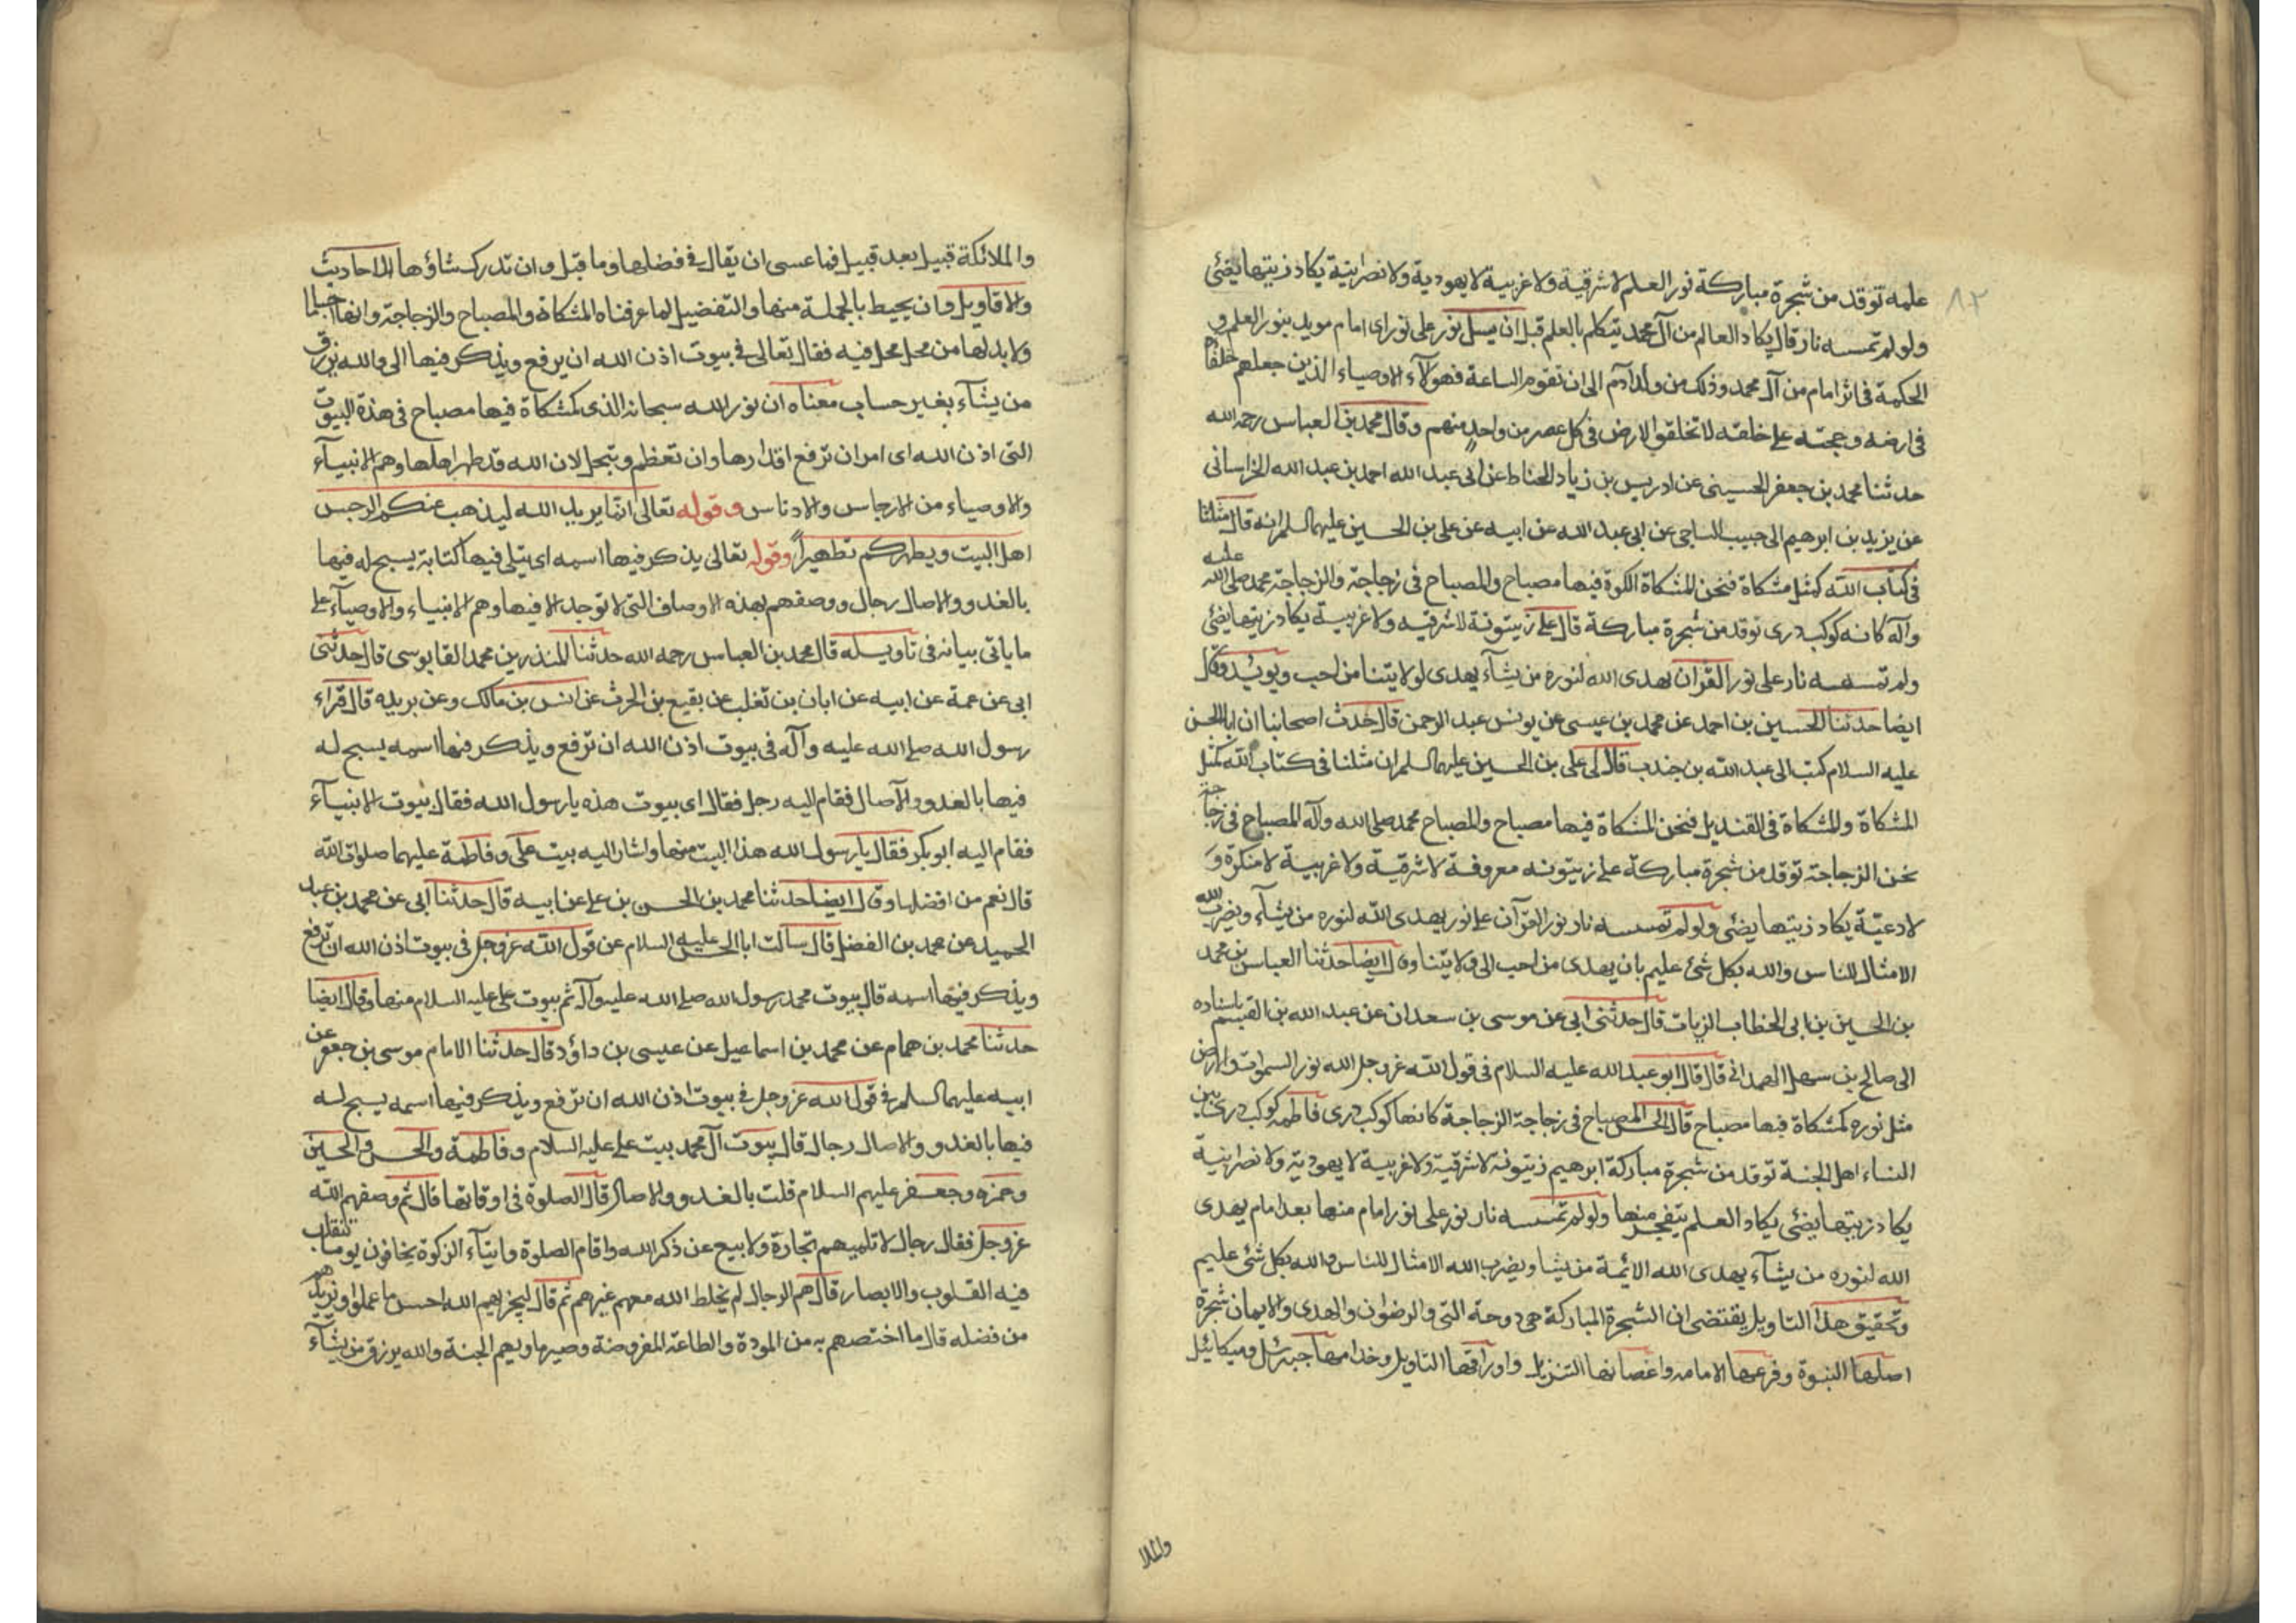 ٨٢
علمه توقد من شجرة مباركة نور العلم لا شرقية ولا غربية لا يهودية ولا نصرانية يكاد زيتها يضئ
ولو لم تمسسه نار قال يكاد العالم من آل محمد يتكلم بالعلم قبل ان يسئل نور على نور اى امام مويد بنور العلم و
الحكمة فى اثر امام من آل محمد وذلك من ولد آدم الى ان تقوم الساعة فهولآء الاوصياء الذين جعلهم خلفاً
فى ارضه وحجته على خلقه لا تخلقوا الارض فى كل عصر من واحد منهم وقال محمد بن العباس رحمه الله
حدثنا محمد بن جعفر الحسينى عن ادريس بن زياد الحناط عن ابى عبد الله احمد بن عبد الله الخراسانى
عن يزيد بن ابرهيم الى حبيب الناجى عن ابى عبد الله عن ابيه عن على بن الحسين عليهما السلم انه قال مثلنا
فى كتاب الله كمثل مشكاة فنحن المشكاة الكوة فيها مصباح والمصباح فى زجاجة والزجاجة محمد صلى الله عليه
وآله كانه كوكب درى توقد من شجرة مباركة قال على زيتونة لا شرقيه ولا غربية يكاد زيتها يضئ
ولم تمسسه نار على نور القرآن يهدى الله لنوره من يشآء يهدى لولايتنا من احب ويويده وقال
ايضا حدثنا الحسين بن احمد عن محمد بن عيسى عن يونس عبد الرحمن قال حدث اصحابنا ان ابا الحسن
عليه السلام كتب الى عبد الله بن جندب قال لى على بن الحسين عليهما السلم ان مثلنا فى كتاب الله كمثل
المشكاة والمشكاة فى القنديل فنحن المشكاة فيها مصباح والمصباح محمد صلى الله وآله المصباح فى زجاجة
نحن الزجاجة توقد من شجرة مباركة على زيتونه معروفة لا شرقية ولا غربية لا منكرة و
لا دعيّة يكاد زيتها يضئى ولو لم تمسسه نار نور القرآن على نور يهدى الله لنوره من يشآء ويضرب الله
الامثال للناس والله بكل شئ عليم بان يهدى من احب الى ولايتنا وقال ايضا حدثنا العباس بن محمد
بن الحسين بن ابى الخطاب الزيات قال حدثنى ابى عن موسى بن سعدان عن عبد الله بن القيسم باسناده
الى صالح بن سهل الهمدانى قال قال ابو عبد الله عليه السلام فى قول الله عز وجل الله نور السموات والارض
مثل نوره كمشكاة فيها مصباح قال الحسن المصباح فى زجاجة الزجاجة كانها كوكب درى فاطمه كوكب درى بين
النساء اهل الجنة توقد من شجرة مباركة ابرهيم زيتونه لا شرقية ولا غربية لا يهودية ولا نصرانية
يكاد زيتها يضئى يكاد العلم يتفجر منها ولو لم تمسسه نار نور على نور امام منها بعد امام يهدى
الله لنوره من يشآء يهدى الله الائمة من يشا ويضرب الله الامثال للناس والله بكل شئى عليم
وتحقيق هذا التاويل يقتضى ان الشجرة المباركة هى دوحة التى والرضوان والهدى والايمان شجرة
اصلها النبوة وفرعها الامامه واغصانها التنزيل واوراقها التاويل وخدامها جبرئيل وميكائيل
والملا
والملائكة قبيل بعد قبيل فما عسى ان يقال فى فضلها وما قبل وان تدرك شاؤها الاحاديث
والاقاويل وان يحيط بالجملة منها والتفضيل لما عرفناه المشكاة والمصباح والزجاجة وانها
ولا بد لها من محل محل فيه فقال تعالى فى بيوت اذن الله ان يرفع ويذكر فيها الى والله يرزق
من يشآء بغير حساب معناه ان نور الله سبحانه الذى كمشكاة فيها مصباح فى هذه البيوت
التى اذن الله اى امر ان ترفع اقدارها وان تعظم وتبجل لان الله قد طهر اهلها وهم الانبيآء
والاوصياء من الارجاس والادناس وقوله تعالى انما يريد الله ليذهب عنكم الرجس
اهل البيت ويطهركم تطهيراً وقوله تعالى يذكر فيها اسمه اى يتلى فيها كتابة يسبح له فيها
بالغدو والاصال رجال ووصفهم بهذه الاوصاف التى لا توجد الا فيها وهم الانبياء والاوصيآء على
ما ياتى بيانه فى تاويسله قال محمد بن العباس رحمه الله حدثنا المنذر بن محمد القابوسى قال حدثنى
ابى عن عمة عن ابيه عن ابان بن تغلب عن بقيع بن الحرث عن انس بن مالك وعن بريده قال قراء
رسول الله صلى الله عليه وآله فى بيوت اذن الله ان ترفع ويذكر فيها اسمه يسبح له
فيها بالغدو والآصال فقام اليه رجل فقال اى بيوت هذه يا رسول الله فقال بيوت الانبيآء
فقام اليه ابو بكر فقال يا رسول الله هذا البيت منها واشار اليه بيت على وفاطمة عليهما صلوات الله
قال نعم من افضلها وقال ايضا حدثنا محمد بن الحسن بن على عن ابيه قال حدثنا ابى عن محمد بن عبد
الحميد عن محمد بن الفضل قال سالت ابا الحسن عليه السلام عن قول الله عز وجل فى بيوت اذن الله ان ترفع
ويذكر فيها اسمه قال بيوت محمد رسول الله صلى الله عليه وآله ثم بيوت على عليه السلام منها وقال ايضا
حدثنا محمد بن همام عن محمد بن اسماعيل عن عيسى بن داؤد قال حدثنا الامام موسى بن جعفر عن
ابيه عليهما السلم فى قول الله عز وجل فى بيوت اذن الله ان ترفع ويذكر فيها اسمه يسبح له
فيها بالغدو والاصال رجال قال بيوت آل محمد بيت على عليه السلام وفاطمة والحسن والحسين
وحمزه وجعفر عليهم السلام قلت بالغدو والاصال قال الصلوة فى اوقاتها قال ثم وصفهم الله
عز وجل فقال رجال لا تلهيهم تجارة ولا بيع عن ذكر الله واقام الصلوة وايتآء الزكوة يخافون يوما تتقلب
فيه القلوب والابصار قال هم الرجال لم يخلط الله معهم غيرهم ثم قال ليجزيهم الله احسن ما عملوا ويزيدهم
من فضله قال ما اختصهم به من المودة والطاعة المفروضة وصير ماويهم الجنة والله يرزق من يشآء